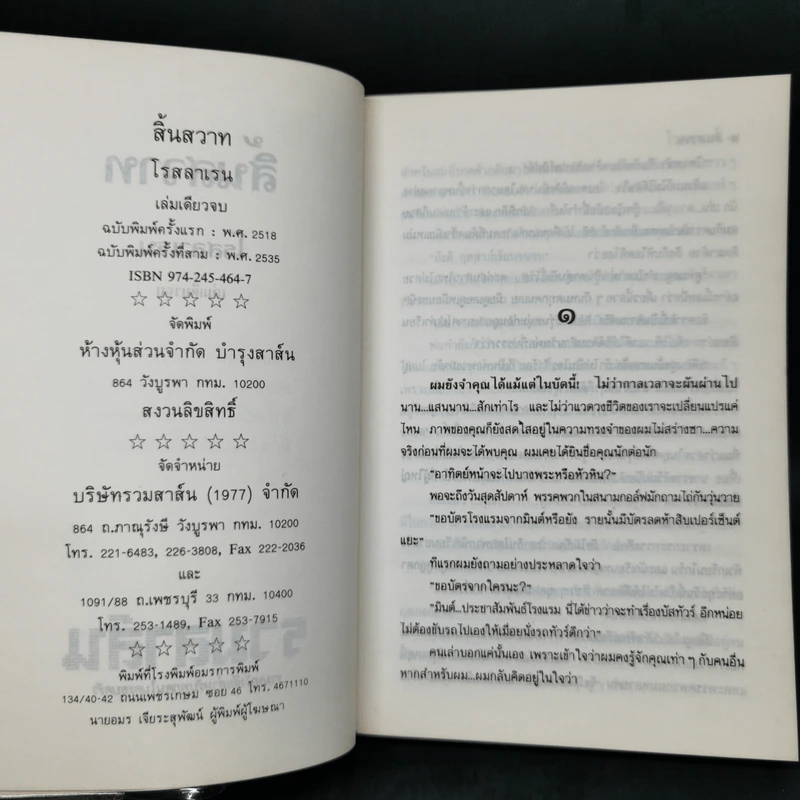 สิ้นสวาท
โรสลาเรน
เล่มเดียวจบ
ฉบับพิมพ์ครั้งแรก : พ.ศ. 2518
ฉบับพิมพ์ครั้งที่สาม : พ.ศ. 2535
ISBN 974-245-464-7
☆ ☆ ☆ ☆ ☆
จัดพิมพ์
ห้างหุ้นส่วนจำกัด บำรุงสาส์น
864 วังบูรพา กทม. 10200
สงวนลิขสิทธิ์
☆ ☆ ☆ ☆ ☆
จัดจำหน่าย
บริษัทรวมสาส์น (1977) จำกัด
864 ถ.ภาณุรังษี วังบูรพา กทม. 10200
โทร. 221-6483, 226-3808, Fax 222-2036
และ
1091/88 ถ.เพชรบุรี 33 กทม. 10400
โทร. 253-1489, Fax 253-7915
☆ ☆ ☆ ☆ ☆
พิมพ์ที่โรงพิมพ์อมรการพิมพ์
134/40-42 ถนนเพชรเกษม ซอย 46 โทร. 4671110
นายอมร เจียระสุพัฒน์ ผู้พิมพ์ผู้โฆษณา
๑
ผมยังจำคุณได้แม้แต่ในบัดนี้! ไม่ว่ากาลเวลาจะผันผ่านไป
นาน...แสนนาน...สักเท่าไร และไม่ว่าแวดวงชีวิตของเราจะเปลี่ยนแปรแค่
ไหน ภาพของคุณก็ยังสดใสอยู่ในความทรงจำของผมไม่สร่างซา...ความ
จริงก่อนที่ผมจะได้พบคุณ ผมเคยได้ยินชื่อคุณนักต่อนัก
"อาทิตย์หน้าจะไปบางพระหรือหัวหิน?"
พอจะถึงวันสุดสัปดาห์ พรรคพวกในสนามกอล์ฟมักถามไถ่กันวุ่นวาย
"ขอบัตรโรงแรมจากมินต์หรือยัง รายนั้นมีบัตรลดห้าสิบเปอร์เซ็นต์
แยะ"
ทีแรกผมยังถามอย่างประหลาดใจว่า
"ขอบัตรจากใครนะ?"
"มินต์...ประชาสัมพันธ์โรงแรม นี่ได้ข่าวว่าจะทำเรื่องบัสทัวร์ อีกหน่อย
ไม่ต้องขับรถไปเองให้เมื่อยนั่งรถทัวร์ดีกว่า"
คนเล่าบอกแค่นั้นเอง เพราะเข้าใจว่าผมคงรู้จักคุณเท่า ๆ กับคนอื่น
หากสำหรับผม...ผมกลับคิดอยู่ในใจว่า